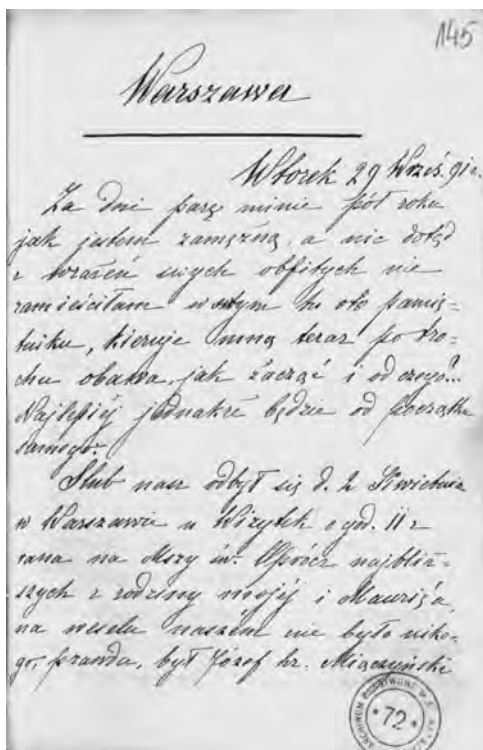 145
Warszawa
Wtorek 29 Wrześ. 91 r.
Za dni parę minie pół roku
jak jestem zamężną, a nic dotąd
z wrażeń mych obfitych nie
zamieściłam w mym tu oto pamię-
tniku, kieruje mną teraz po tro-
chu obawa, jak zacząć i od czego?..
Najlepiéj jednakże będzie od początku
samego.
Ślub nasz odbył się d. 2 Kwietnia
w Warszawie u Wizytek o god. 11 z
rana na Mszy św. Oprócz najbliż-
szych z rodziny mojéj i Maurica,
na weselu naszém nie było niko-
go, prawda, był Józef hr. Miączyński
ARCHIWUM PAŃSTWOWE
72